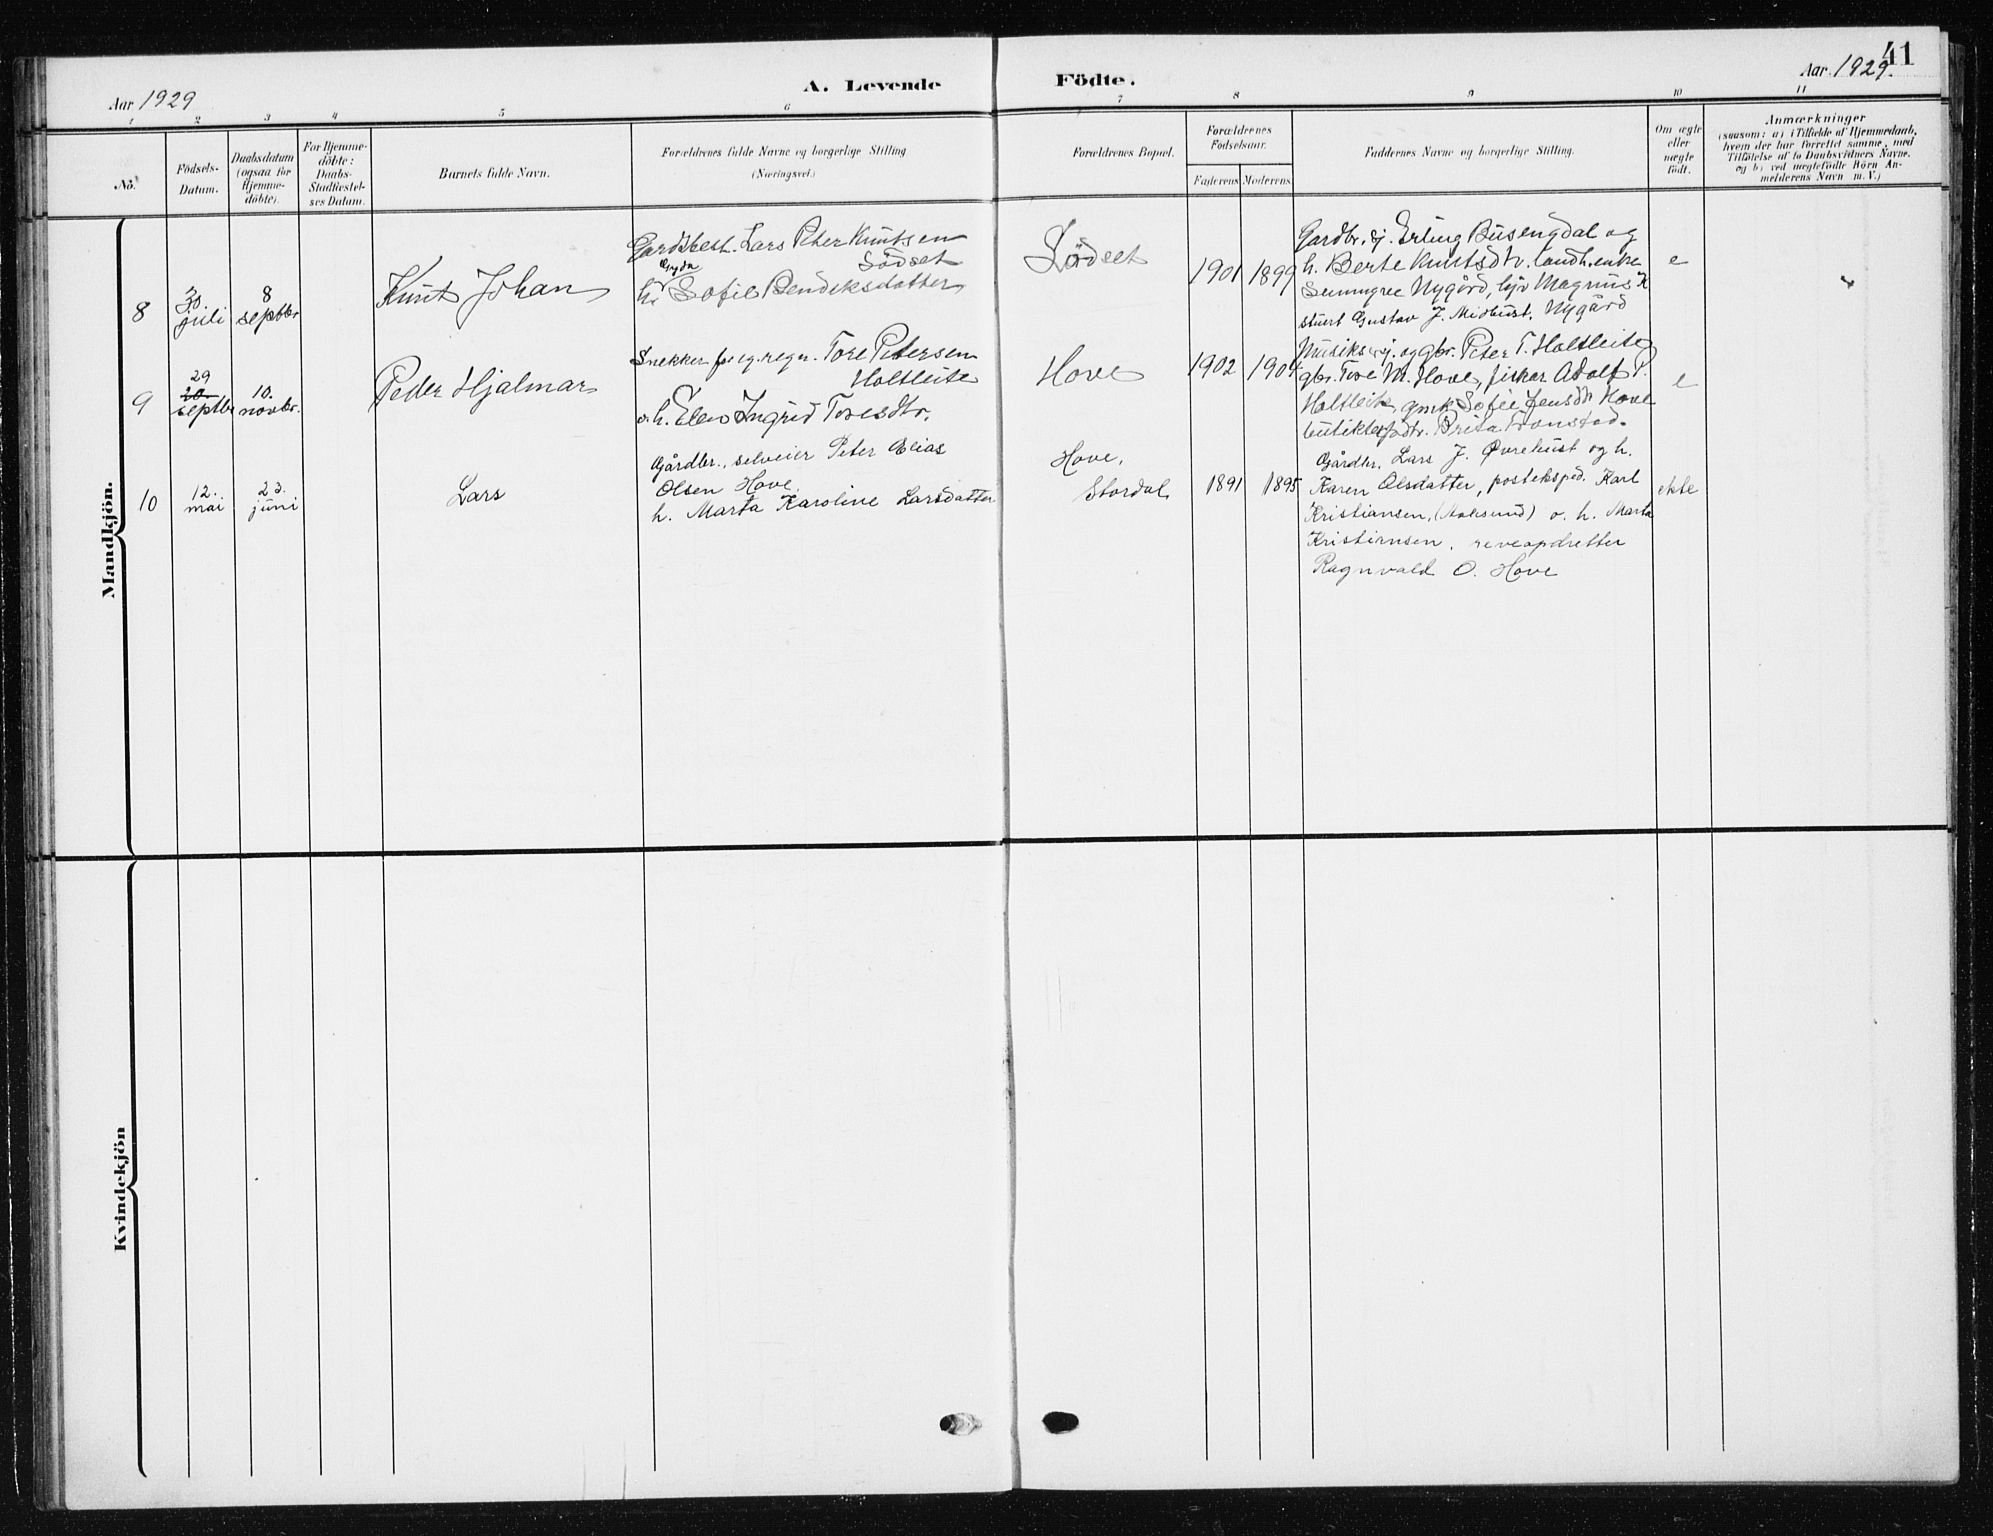 41
Aar 1929
A. Levende
Födte.
Aar 1929.
1 2 3 4 5 6 7 8 9 10 11
No.
Födsels-
Datum.
Daabsdatum
(ogsaa for
Hjemme-
döbte).
For Hjemme-
döbte:
Daabs-
Stadfæstel-
ses Datum.
Barnets fulde Navn.
Forældrenes fulde Navne og borgerlige Stilling
(Næringsvei.)
Forældrenes Bopæl.
Forældrenes
Födselsaar.
Faderens Moderens
Faddernes Navne og borgerlige Stilling.
Om ægte
eller
uægte
födt.
Anmærkninger
(saasom: a) i Tilfælde af Hjemmedaab,
hvem der har forrettet samme, med
Tilföielse af to Daabsvidners Navne.
og b) ved uægtefödte Börn An-
melderens Navn m. V.)
Mandkjön.
8
30.
juli
8
septbr
Knut Johan
Gardbest. Lars Peter Knutsen
Lödset
Gyda
h. Sofie Bendiksdatter
Lödset
1901 1899
Gardbr. sj. Erling Busengdal og
h. Berte Knutsdtr. landh. enke
Nygård, Magnus K
Gustav J. Midhust, Nygård
e
9
29
20.
septbr
10.
novbr.
Peder Hjalmar
Snekker for eg. regn. Tore Petersen
Holtleite
o. h. Elen Ingrid Toresdtr.
Hove
1902 1904
og gbr. Peter T. Holtleite
gbr. Tore M. Hove, fisker Adolf P.
Holtleite, gmk Sofie Jensdtr Hove
Brita
e
10
12.
mai
23.
juni
Lars
Gårdbr., selveier Peter Elias
Olsen Hove
h. Marta Karoline Larsdatter
Hove,
Stordal
1891 1895
Gårdbr. Lars J. Øvrehust og h.
Karen Olsdatter, posteksped. Karl
Kristiansen, (Aalesund) o. h. Marta
Kristiansen, reveopdretter
Ragnvald O. Hove
ekte
Kvindekjön